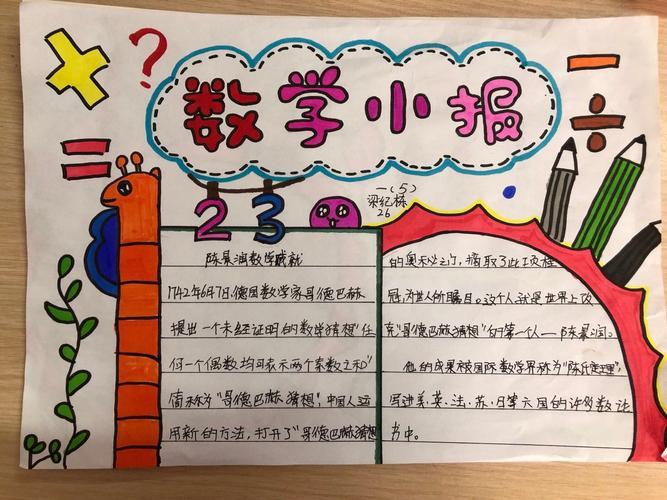 数学小报
一(5)
梁纪栋
26
23
陈景润数学成就
1742年6月7日德国数学家哥德巴赫
提出一个未经证明的数学猜想"任
何一个偶数均可表示两个素数之和"
简称为"哥德巴赫猜想",中国人运
用新的方法,打开了"哥德巴赫猜想
的奥秘之门,摘取了此项桂
冠,为世人所瞩目。这个人就是世界上攻
克"哥德巴赫猜想"的第一个人——陈景润。
他的成果被国际数学界称为"陈氏定理",
写进美、英、法、苏、日等六国的许多数论
书中。